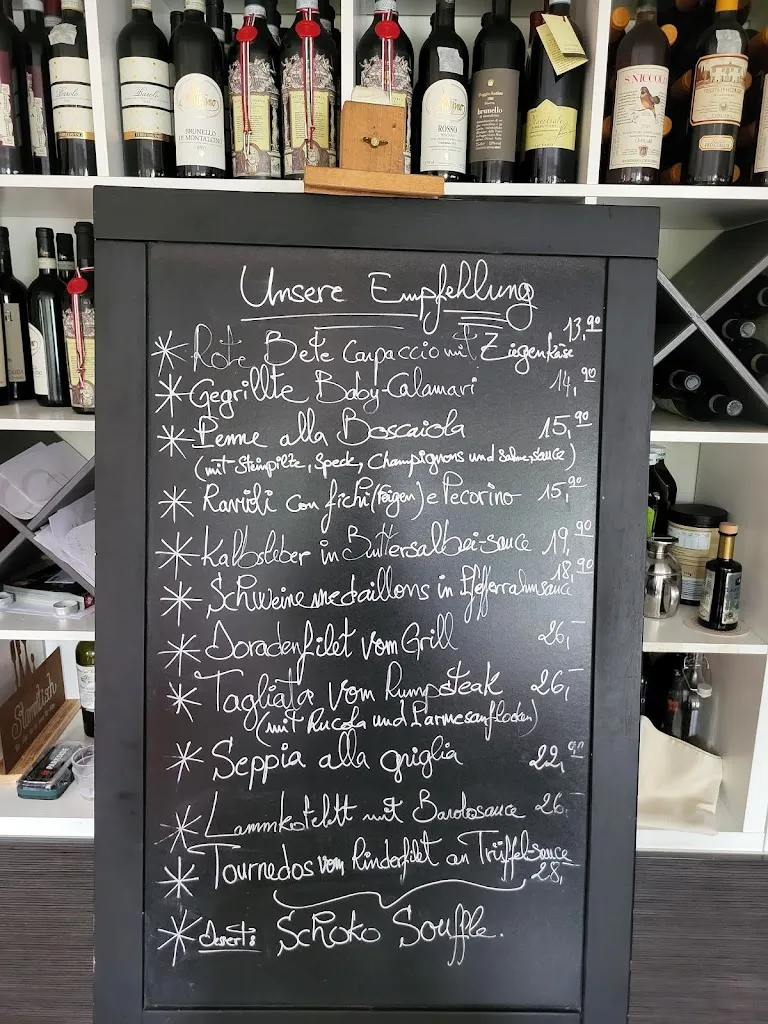 Barolo
BRUNELLO
DI MONTALCINO
ROSSO
brunello
S. NICCOLO'
Unsere Empfehlung
* Rote Bete Carpaccio mit Ziegenkäse 13,90
* Gegrillte Baby-Calamari 14,90
* Penne alla Boscaiola 15,90
(mit Steinpilze, Speck, Champignons und Sahnesauce)
* Ravioli con fichi (Feigen) e Pecorino 15,90
* Kalbsleber in Buttersalbei-sauce 19,90
* Schweinemedaillons in Pfefferrahmsauce 18,90
* Doradenfilet vom Grill 26,-
* Tagliata vom Rumpsteak 26,-
(mit Rucola und Parmesanflocken)
* Seppia alla griglia 22,90
* Lammkotelett mit Barolosauce 26,-
* Tournedos vom Rinderfilet an Trüffelsauce
28,
* desert: Schoko Souffle.